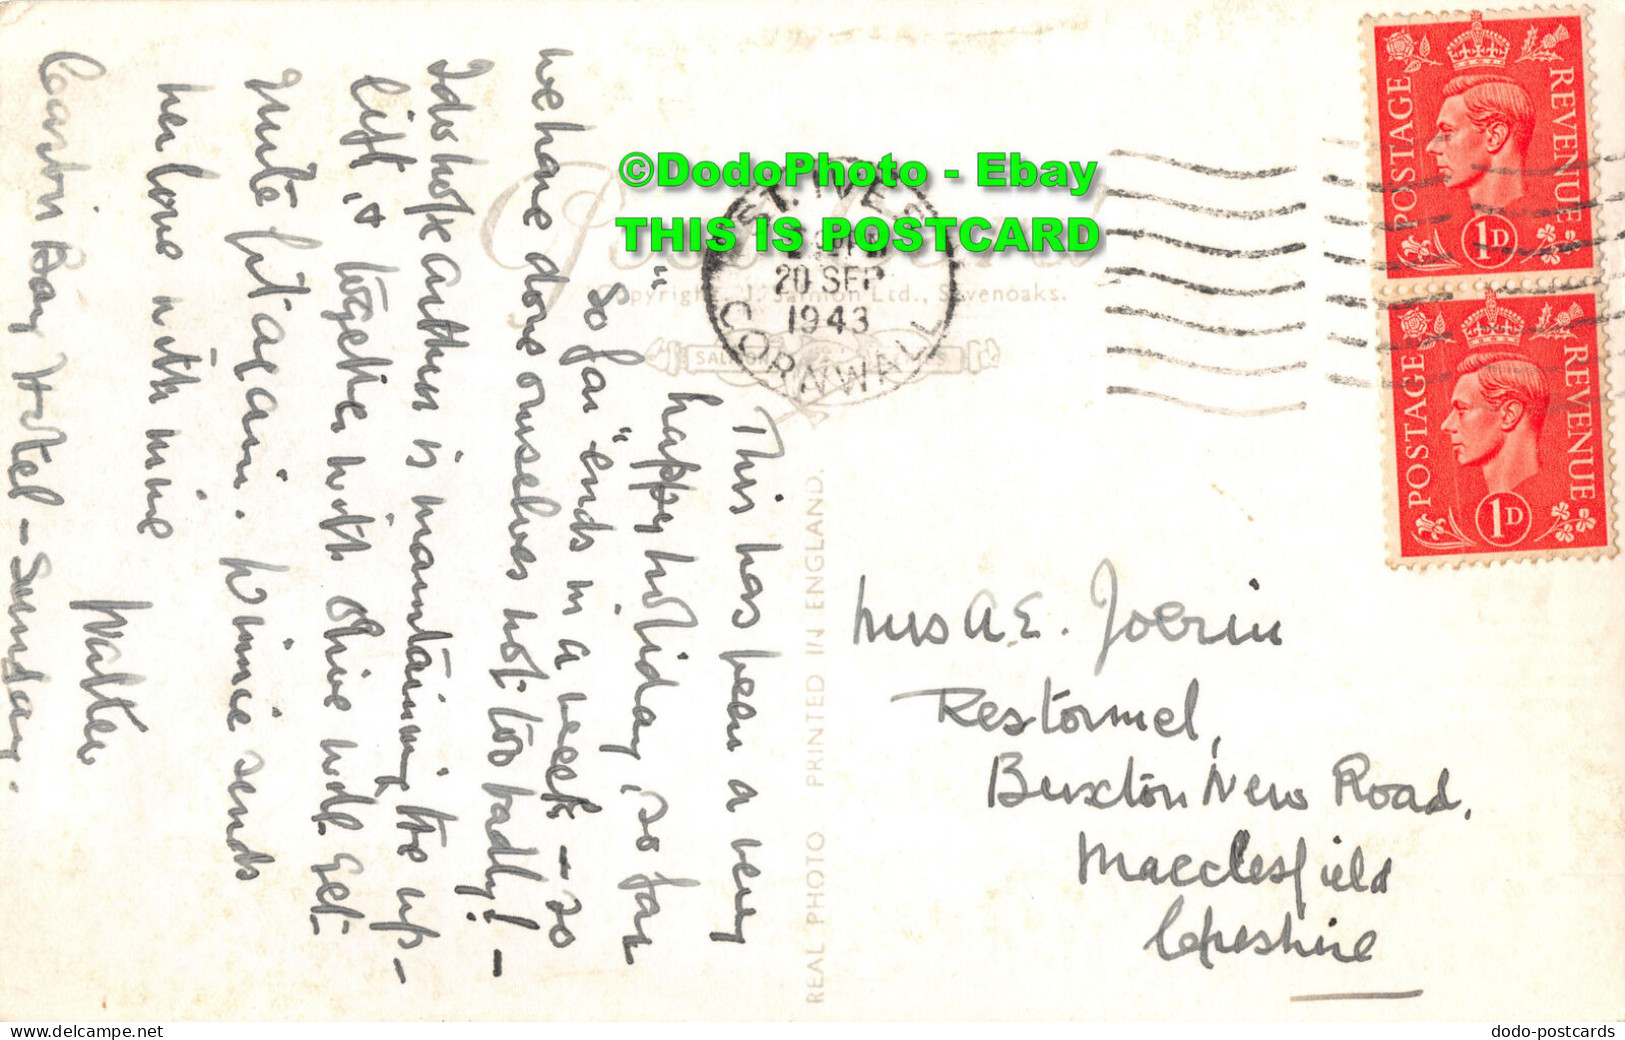 Carbis Bay Hotel - Sunday.
This has been a very
happy holiday, so far
"So far" ends in a week - so
we have done ourselves not too badly! -
I do hope Arthur is maintaining the up-
lift, & together with Olive will get
quite fit again. Winnie sends
her love with mine
Walter
Post Card
Copyright, J. Salmon Ltd., Sevenoaks.
SALMON SERIES
REAL PHOTO PRINTED IN ENGLAND.
ST. IVES
20 SEP
1943
CORNWALL
POSTAGE REVENUE
1D
POSTAGE REVENUE
1D
Mrs A. E.
Restormel,
Buxton New Road,
Macclesfield
Cheshire
©DodoPhoto - Ebay
THIS IS POSTCARD
www.delcampe.net
dodo-postcards